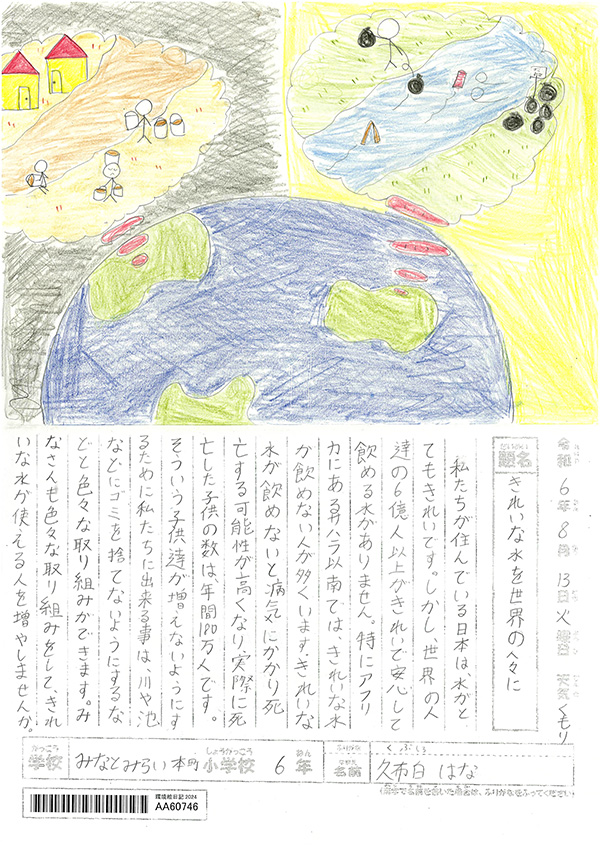 令和6年8月13日火曜日 天気くもり
題名 きれいな水を世界の人々に
私たちが住んでいる日本は、水がと
てもきれいです。しかし、世界の人
達の6億人以上がきれいで安心して
飲める水がありません。特にアフリ
カにあるサハラ以南では、きれいな水
が飲めない人が多くいます。きれいな
水が飲めないと病気にかかり死
亡する可能性が高くなり、実際に死
亡した子供の数は、年間180万人です。
そういう子供達が増えないようにす
るために私たちに出来る事は、川や池
などにゴミを捨てないようにするな
どと色々な取り組みができます。み
なさんも色々な取り組みをして、きれ
いな水が使える人を増やしませんか。
がっこう しょうがっこう ねん ふりがな くぶしろ
学校 みなとみらい本町小学校 6年 名前 久布白 はな
(漢字で名前を書いた場合は、ふりがなをふってください)
環境絵日記2024
AA60746